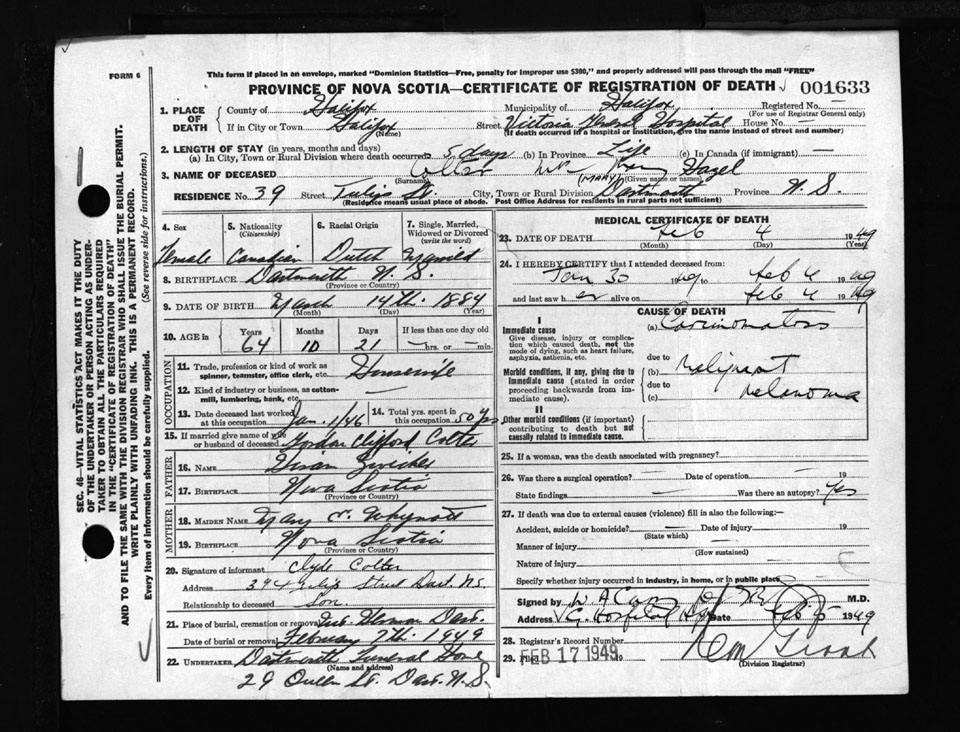 FORM 6
This form if placed in an envelope, marked "Dominion Statistics—Free, penalty for improper use $300," and properly addressed will pass through the mail "FREE"
PROVINCE OF NOVA SCOTIA—CERTIFICATE OF REGISTRATION OF DEATH 001633
1. PLACE OF DEATH County of Halifax Municipality of Halifax Registered No. —
(For use of Registrar General only)
If in City or Town Halifax Street Victoria General Hospital House No. —
(Name) (If death occurred in a hospital or institution, give the name instead of street and number)
2. LENGTH OF STAY (in years, months and days)
(a) In City, Town or Rural Division where death occurred 5 days (b) In Province Life (c) In Canada (if immigrant) —
3. NAME OF DECEASED Colter Mary (MARY) Hazel
(Surname) (Given name or names)
RESIDENCE No. 39 Street Tulip St. City, Town or Rural Division Dartmouth Province N. S.
(Residence means usual place of abode. Post Office Address for residents in rural parts not sufficient)
4. Sex 5. Nationality (Citizenship) 6. Racial Origin 7. Single, Married, Widowed or Divorced (write the word)
Female Canadian Dutch Married
8. BIRTHPLACE Dartmouth N. S.
(Province or Country)
9. DATE OF BIRTH March 14th. 1884
(Month) (Day) (Year)
10. AGE in Years Months Days If less than one day old
64 10 21 — hrs. or — min.
OCCUPATION
11. Trade, profession or kind of work as spinner, teamster, office clerk, etc. Housewife
12. Kind of industry or business, as cotton-mill, lumbering, bank, etc. —
13. Date deceased last worked at this occupation Jan. 1/46 14. Total yrs. spent in this occupation 50 yrs
15. If married give name of wife or husband of deceased Gordon Clifford Colter
FATHER
16. NAME Zwicker
17. BIRTHPLACE Nova Scotia
(Province or Country)
MOTHER
18. MAIDEN NAME Mary Whynott
19. BIRTHPLACE Nova Scotia
(Province or Country)
20. Signature of informant Clyde Colter
Address 39 Tulip Street Dart. N.S.
Relationship to deceased Son.
21. Place of burial, cremation or removal Dart.
Date of burial or removal February 7th. 1949
22. UNDERTAKER Dartmouth Funeral Home
(Name and address)
29 Queen St. Dart. N. S.
MEDICAL CERTIFICATE OF DEATH
23. DATE OF DEATH Feb 4 1949
(Month) (Day) (Year)
24. I HEREBY CERTIFY that I attended deceased from:
Jan 30 1949 Feb 4 1949
and last saw her alive on Feb 4 1949
CAUSE OF DEATH
I
Immediate cause (a) Carcinomatosis
Give disease, injury or complication which caused death, not the mode of dying, such as heart failure, asphyxia, asthenia, etc.
due to
Morbid conditions, if any, giving rise to immediate cause (stated in order proceeding backwards from immediate).
(b) Malignant
due to
(c) Melanoma
II
Other morbid conditions (if important) contributing to death but not causally related to immediate cause.
25. If a woman, was the death associated with pregnancy?
26. Was there a surgical operation? — Date of operation — 19
State findings — Was there an autopsy? Yes
27. If death was due to external causes (violence) fill in also the following:—
Accident, suicide or homicide? — Date of injury — 19
(State which)
Manner of injury —
(How sustained)
Nature of injury
Specify whether injury occurred in industry, in home, or in public place
Signed by M.D.
Address V. G. Hospital Date Feb 5 1949
28. Registrar's Record Number
29. Filed FEB 17 1949 19
(Division Registrar)
SEC. 46—VITAL STATISTICS ACT MAKES IT THE DUTY OF THE UNDERTAKER OR PERSON ACTING AS UNDERTAKER TO OBTAIN ALL THE PARTICULARS REQUIRED IN THE "CERTIFICATE OF REGISTRATION OF DEATH" AND TO FILE THE SAME WITH THE DIVISION REGISTRAR WHO SHALL ISSUE THE BURIAL PERMIT.
WRITE PLAINLY WITH UNFADING INK. THIS IS A PERMANENT RECORD.
Every item of information should be carefully supplied. (See reverse side for instructions.)